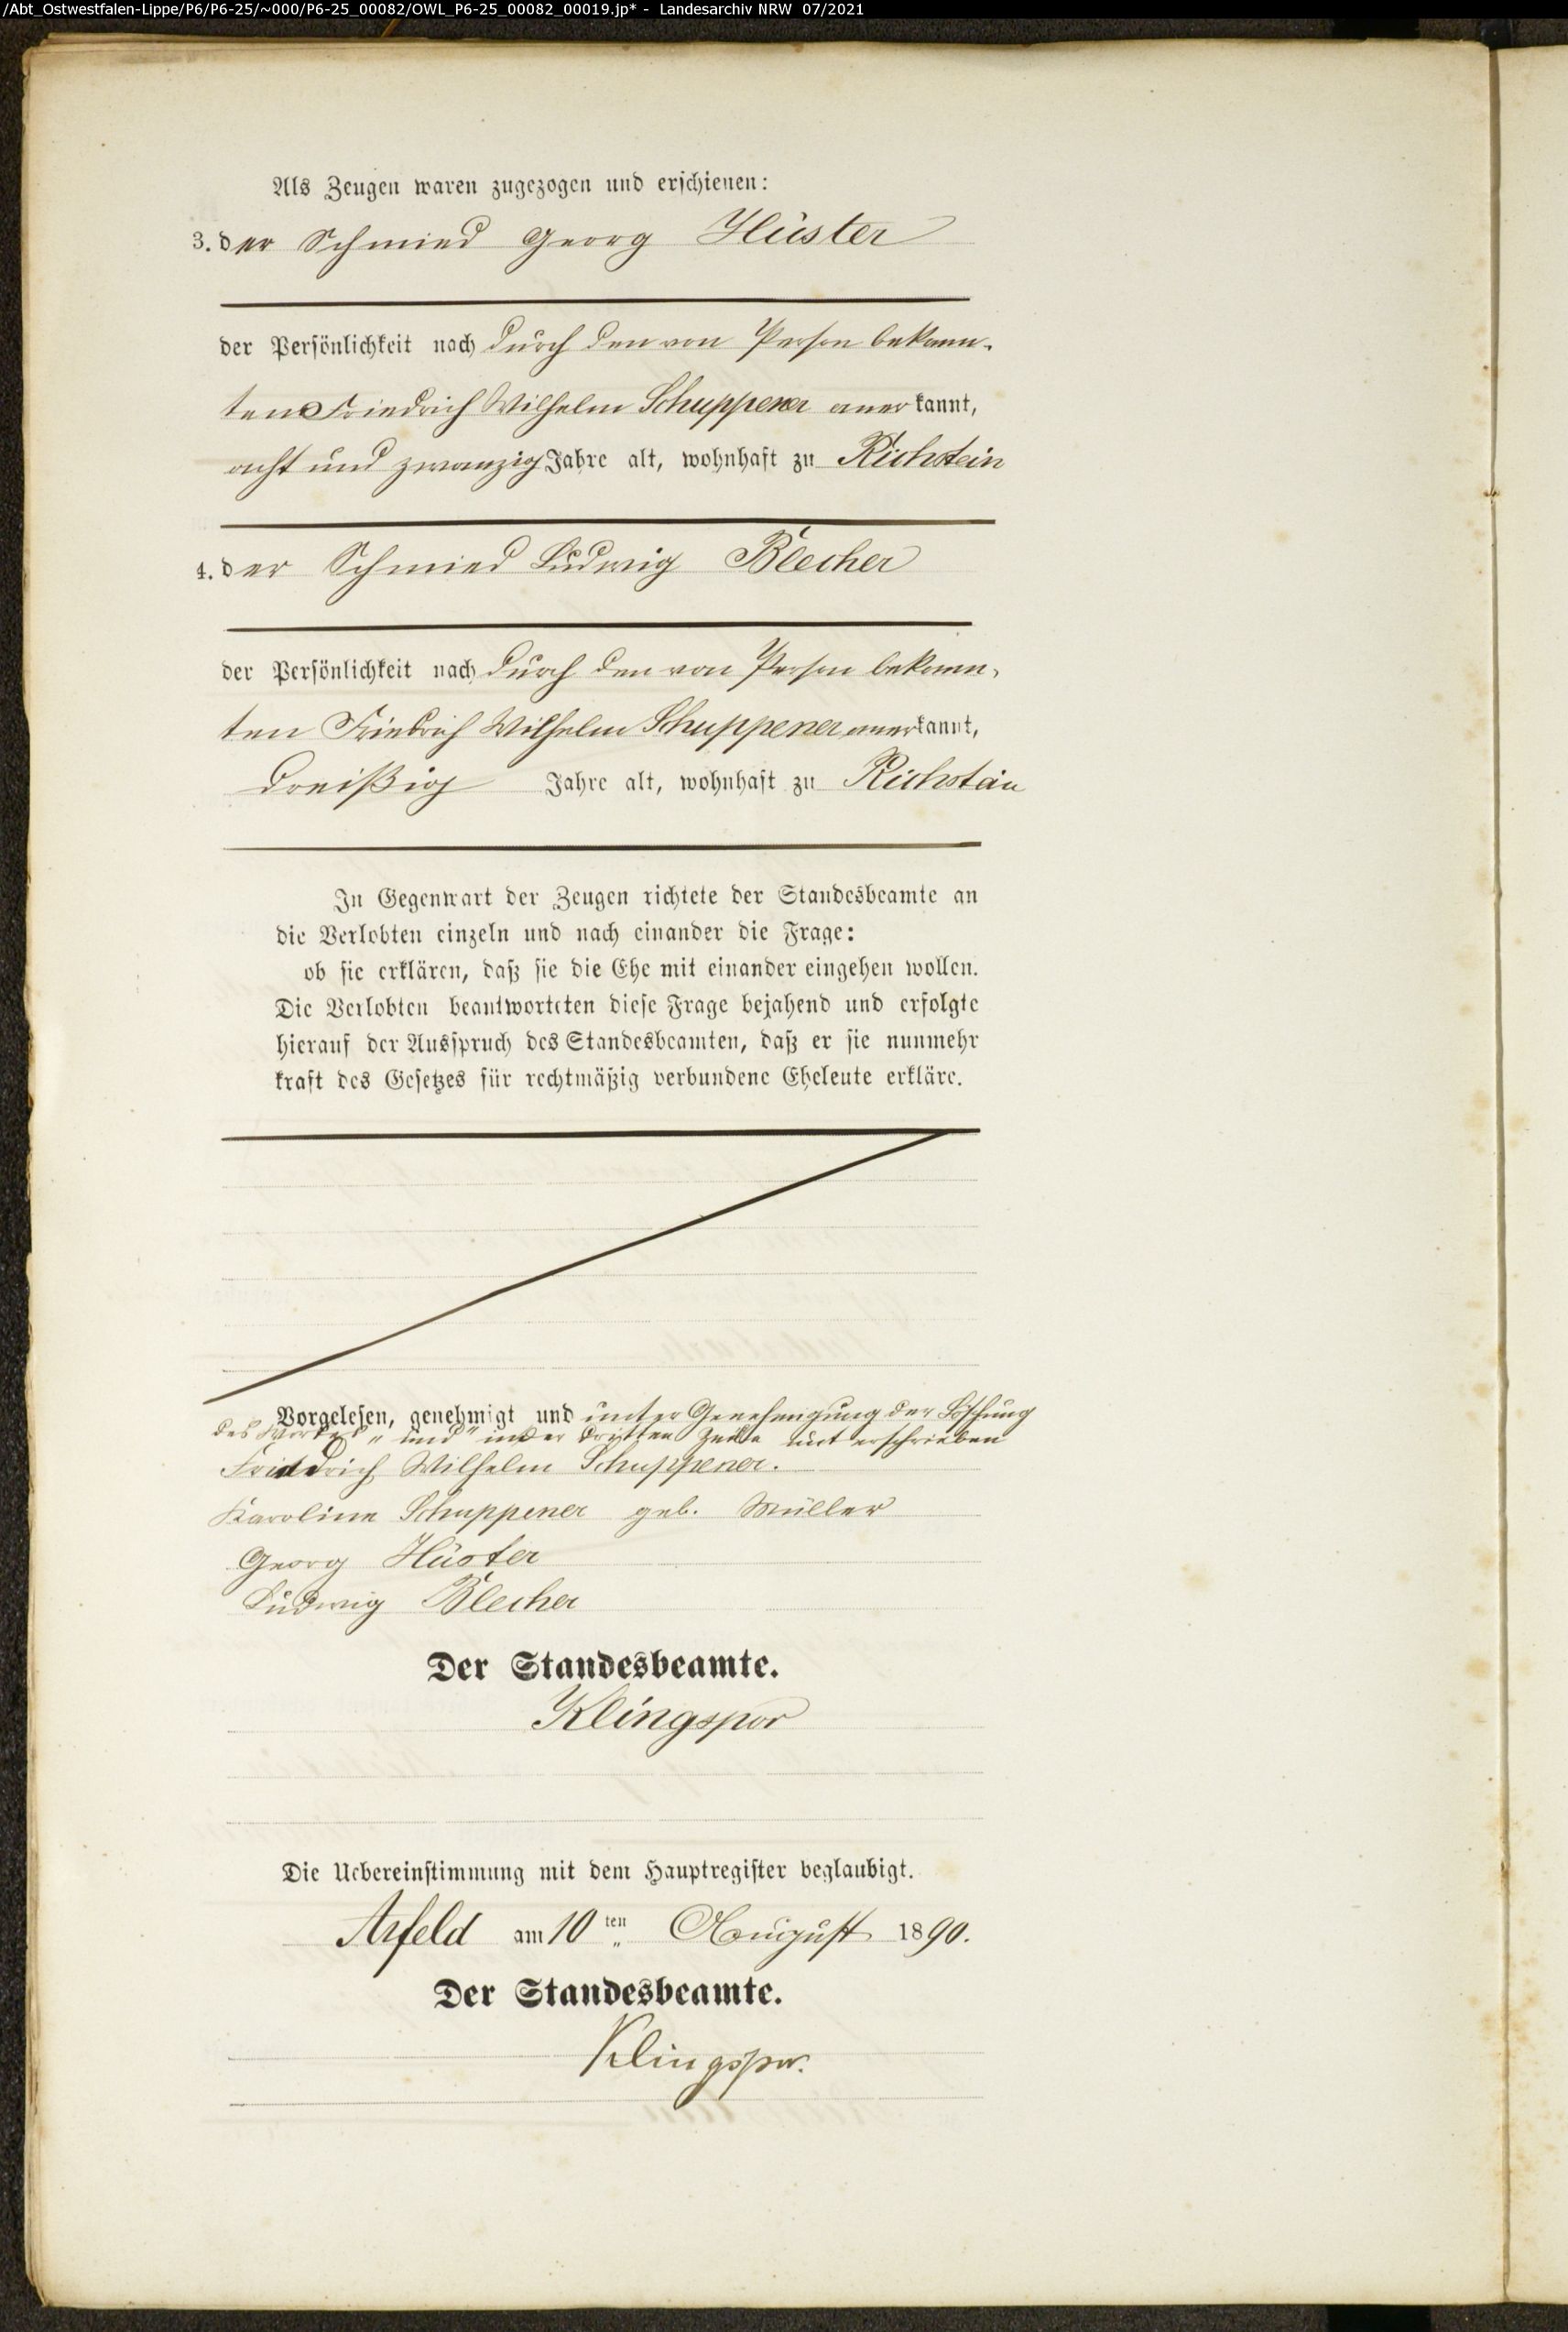 /Abt_Ostwestfalen-Lippe/P6/P6-25/~000/P6-25_00082/OWL_P6-25_00082_00019.jp* - Landesarchiv NRW 07/2021
Als Zeugen waren zugezogen und erschienen:
3. der Schmied Georg Hüster
der Persönlichkeit nach durch den von Person bekann-
ten Friedrich Wilhelm Schuppener anerkannt,
acht und zwanzig Jahre alt, wohnhaft zu Richstein
4. der Schmied Ludwig Blecher
der Persönlichkeit nach durch den von Person bekann-
ten Friedrich Wilhelm Schuppener anerkannt,
dreißig Jahre alt, wohnhaft zu Richstein
In Gegenwart der Zeugen richtete der Standesbeamte an
die Verlobten einzeln und nach einander die Frage:
ob sie erklären, daß sie die Ehe mit einander eingehen wollen.
Die Verlobten beantworteten diese Frage bejahend und erfolgte
hierauf der Ausspruch des Standesbeamten, daß er sie nunmehr
kraft des Gesetzes für rechtmäßig verbundene Eheleute erkläre.
Vorgelesen, genehmigt und unter Genehmigung der Löschung
des Wortes „und" in der dritten Zeile unterschrieben
Friedrich Wilhelm Schuppener.
Karoline Schuppener geb. Müller
Georg Hüster
Ludwig Blecher
Der Standesbeamte.
Klingspor
Die Uebereinstimmung mit dem Hauptregister beglaubigt.
Arfeld am 10ten August 1890.
Der Standesbeamte.
Klingspor.